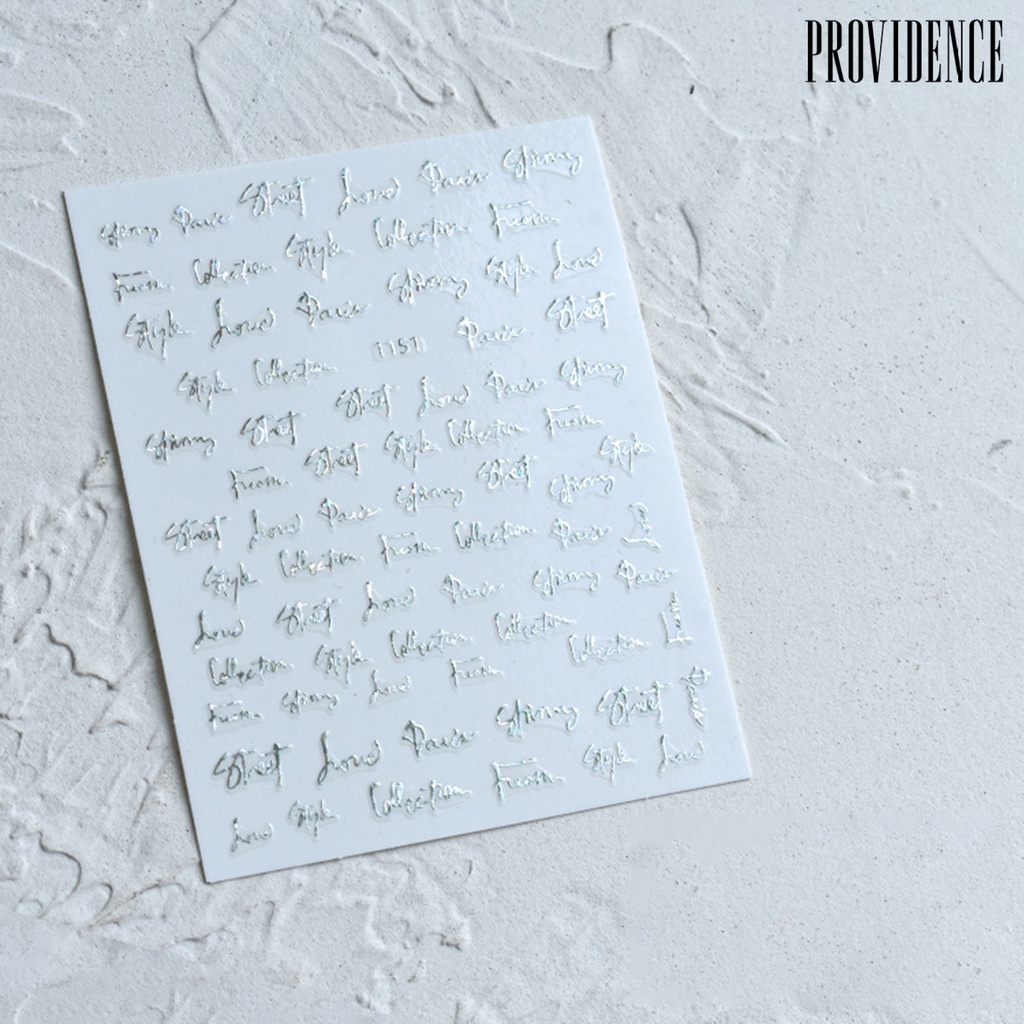 PROVIDENCE
Spring Paris Street Love Paris Spring
From Collection Style Collection From
Style Love Paris Spring Style Love
Style Collection 1151 Paris Street
Spring Street Street Love Paris Spring
From Street Style Collection From Style
Street Love Paris Spring Street Spring
Style Collection From Collection Paris Love
Love Street Love Paris Spring Paris
Collection Style Collection Collection Collection From
From Spring Love From
Street Love Paris Spring Street Paris
Love Style Collection From Style Love